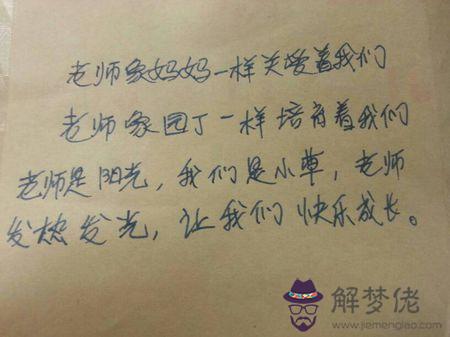 老师象妈妈一样关爱着我们
老师象园丁一样培育着我们
老师是阳光，我们是小草，老师
发热发光，让我们快乐成长。
解梦佬
www.jiemenglao.com